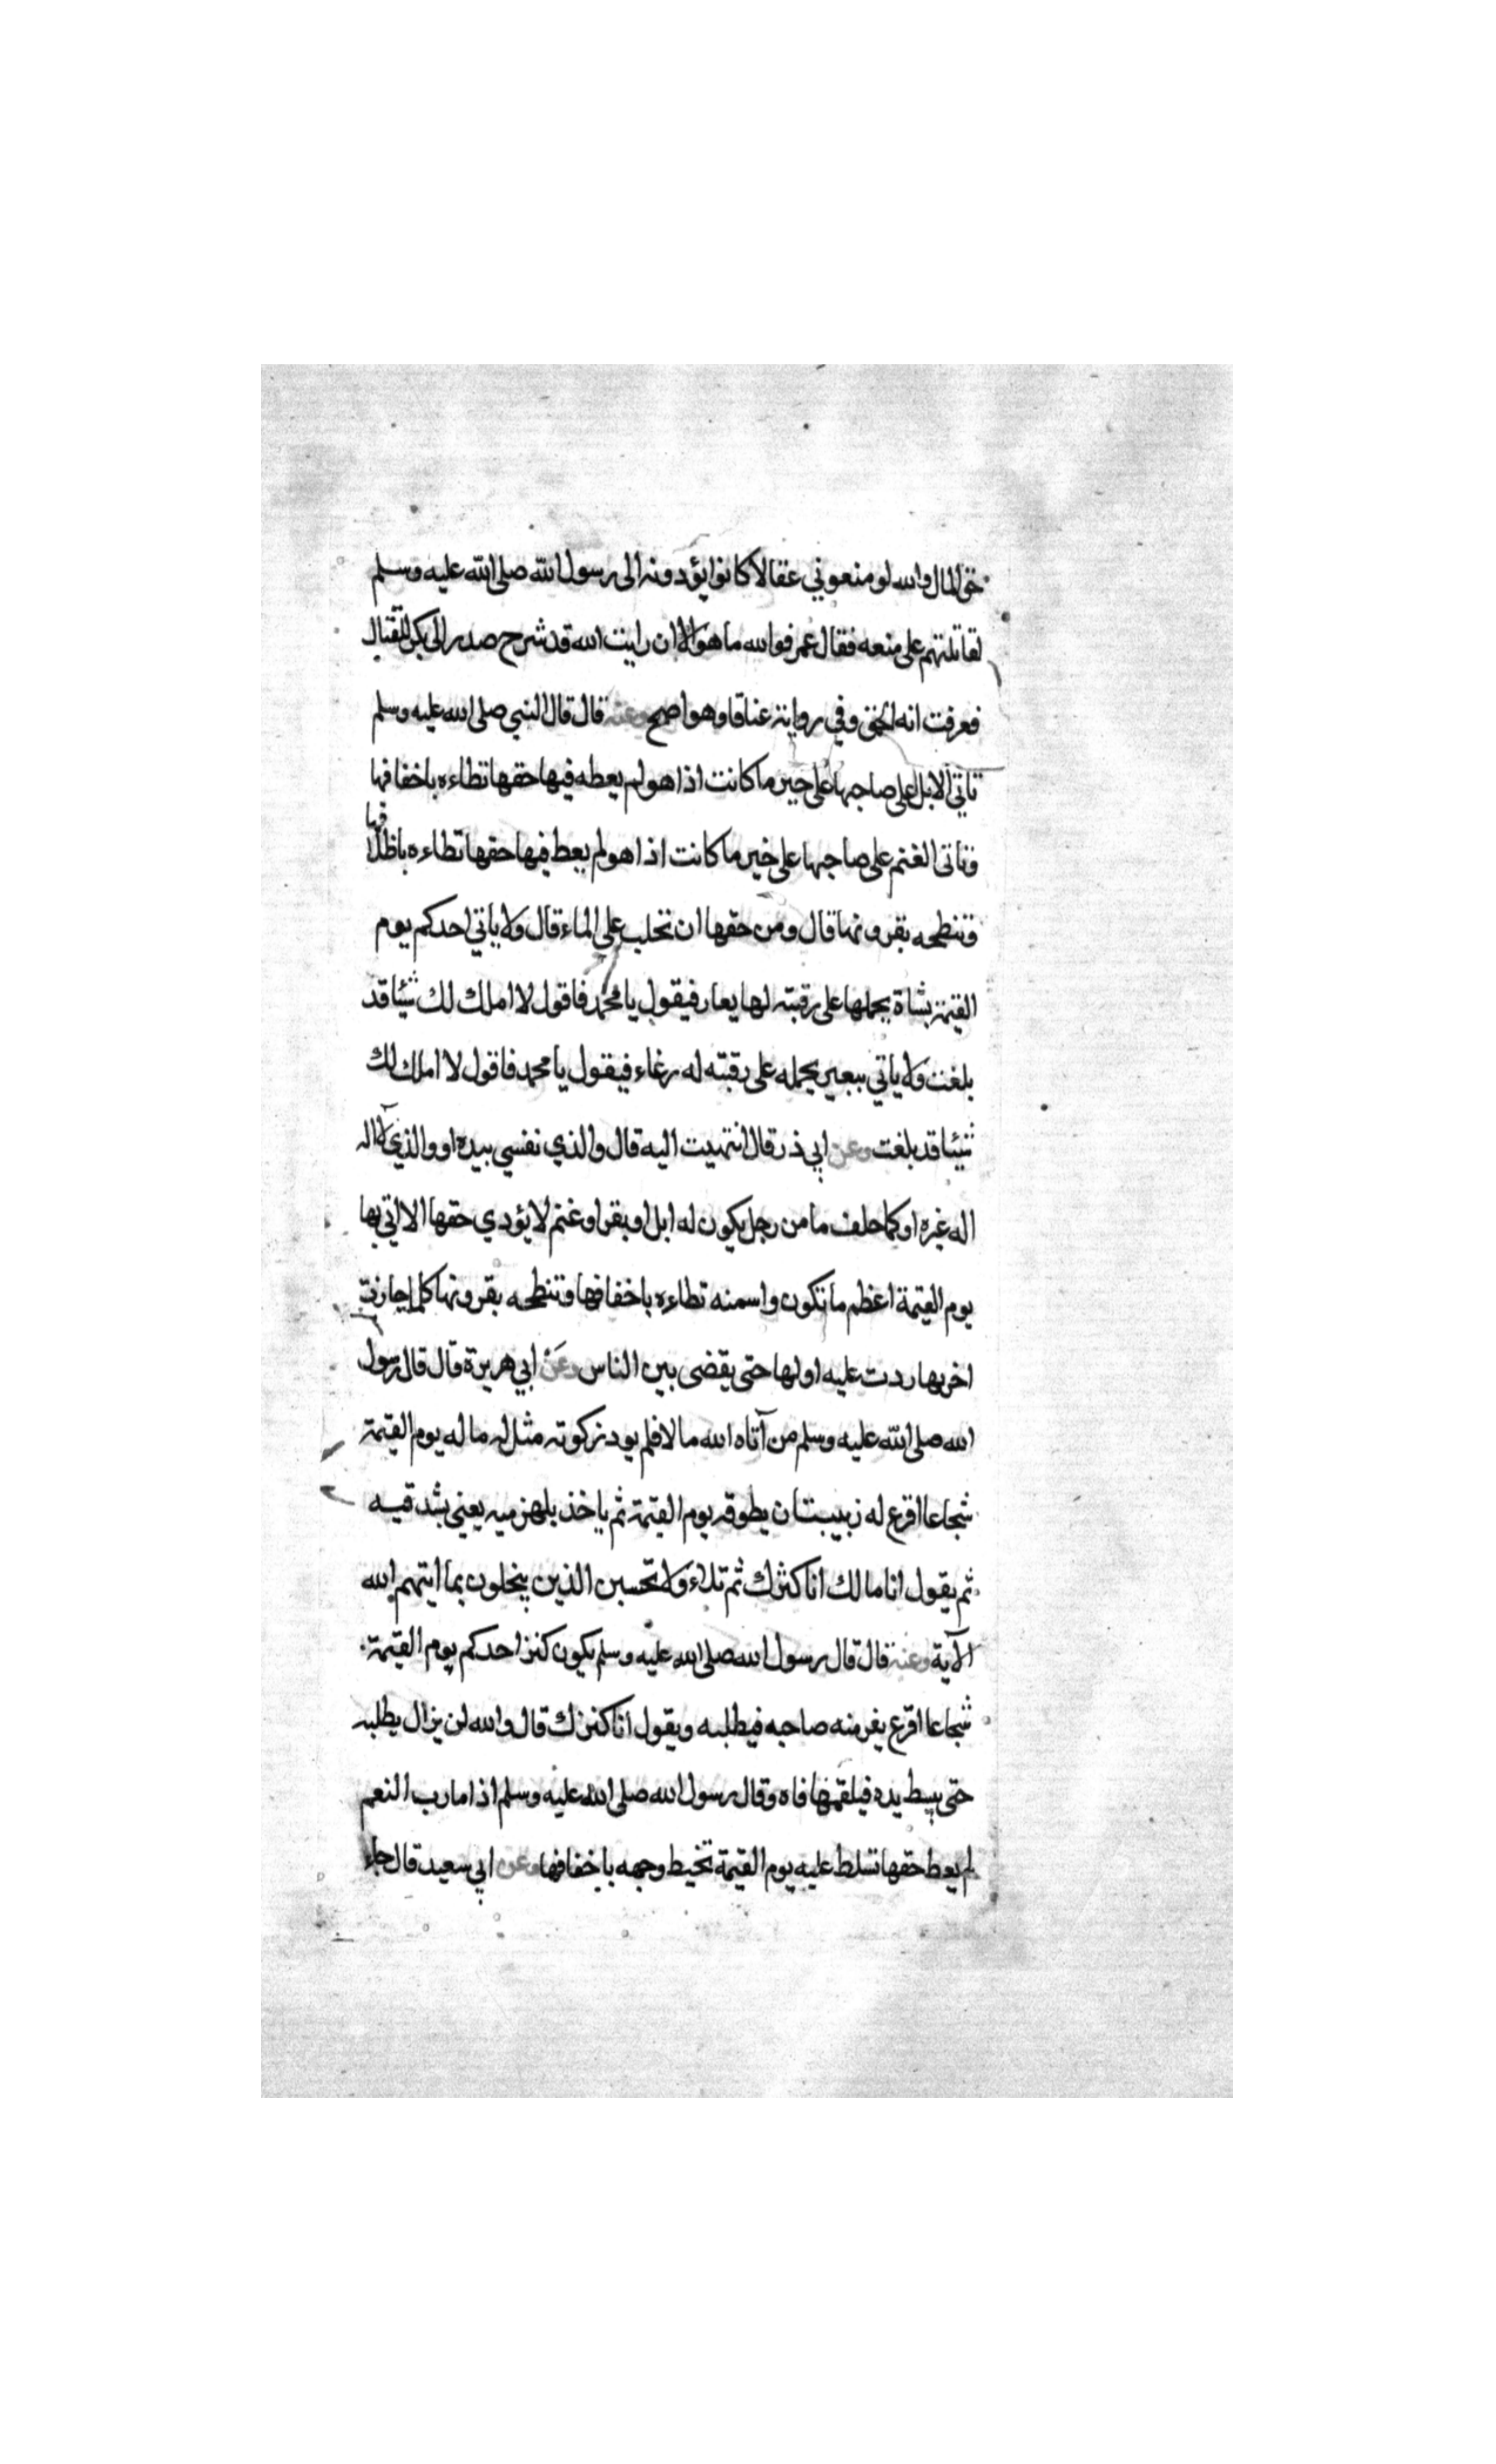 حق المال والله لو منعوني عقالا كانوا يؤدونه الى رسول الله صلى الله عليه وسلم
لقاتلتهم على منعه فقال عمر فوالله ما هو الا ان رايت الله قد شرح صدر ابي بكر للقتال
فعرفت انه الحق وفي رواية عناقا وهو اصح وعنه قال قال النبي صلى الله عليه وسلم
تاتي الابل على صاحبها على خير ما كانت اذا هو لم يعطه فيها حقها تطاءه باخفافها
وتاتى الغنم على صاحبها على خير ما كانت اذا هو لم يعط فيها حقها تطاءه باظلافها
وتنطحه بقرونها قال ومن حقها ان تحلب على الماء قال ولا ياتي احدكم يوم
القيمة بشاة يحملها على رقبته لها يعار فيقول يا محمد فاقول لا املك لك شيئا قد
بلغت ولا ياتي ببعير يحمله على رقبته له رغاء فيقول يا محمد فاقول لا املك لك
شيئا قد بلغت وعن ابي ذر قال انتهيت اليه قال والذي نفسي بيده او والذي لا اله
اله غيره او كما حلف ما من رجل يكون له ابل او بقر او غنم لا يؤدي حقها الا اتي بها
يوم القيمة اعظم ما تكون واسمنه تطاءه باخفافها وتنطحه بقرونها كلما جازت
اخريها ردت عليه اولها حتى يقضى بين الناس وعن ابي هريرة قال قال رسول
الله صلى الله عليه وسلم من آتاه الله مالا فلم يود زكوته مثل له ماله يوم القيمة
شجاعا اقرع له زبيبتان يطوقه يوم القيمة ثم ياخذ بلهزميه يعني بشدقيه
ثم يقول انا مالك انا كنزك ثم تلاء ولا تحسبن الذين يبخلون بما اتيهم الله
الآية وعنه قال قال رسول الله صلى الله عليه وسلم يكون كنز احدكم يوم القيمة
شجاعا اقرع يفر منه صاحبه فيطلبه ويقول انا كنزك قال والله لن يزال يطلبه
حتى يبسط يده فيلقمها فاه وقال رسول الله صلى الله عليه وسلم اذا ما رب النعم
لم يعط حقها تسلط عليه يوم القيمة تخبط وجهه باخفافها وعن ابي سعيد قال جاء